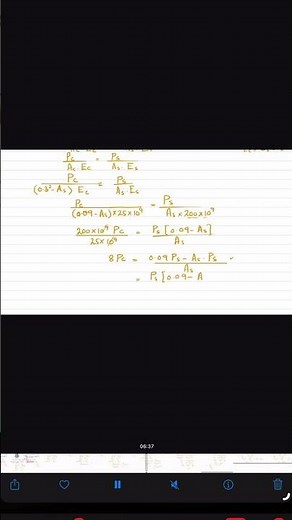 P_c / A_c · E_c = P_s / A_s · E_s
P_c / (0.3² - A_s) E_c = P_s / A_s · E_s
P_c / (0.09 - A_s) × 25 × 10⁹ = P_s / A_s × 200 × 10⁹
200 × 10⁹ P_c / 25 × 10⁹ = P_s [0.09 - A_s] / A_s
8 P_c = 0.09 P_s - A_s · P_s / A_s
= P_s [0.09 - A
06:37